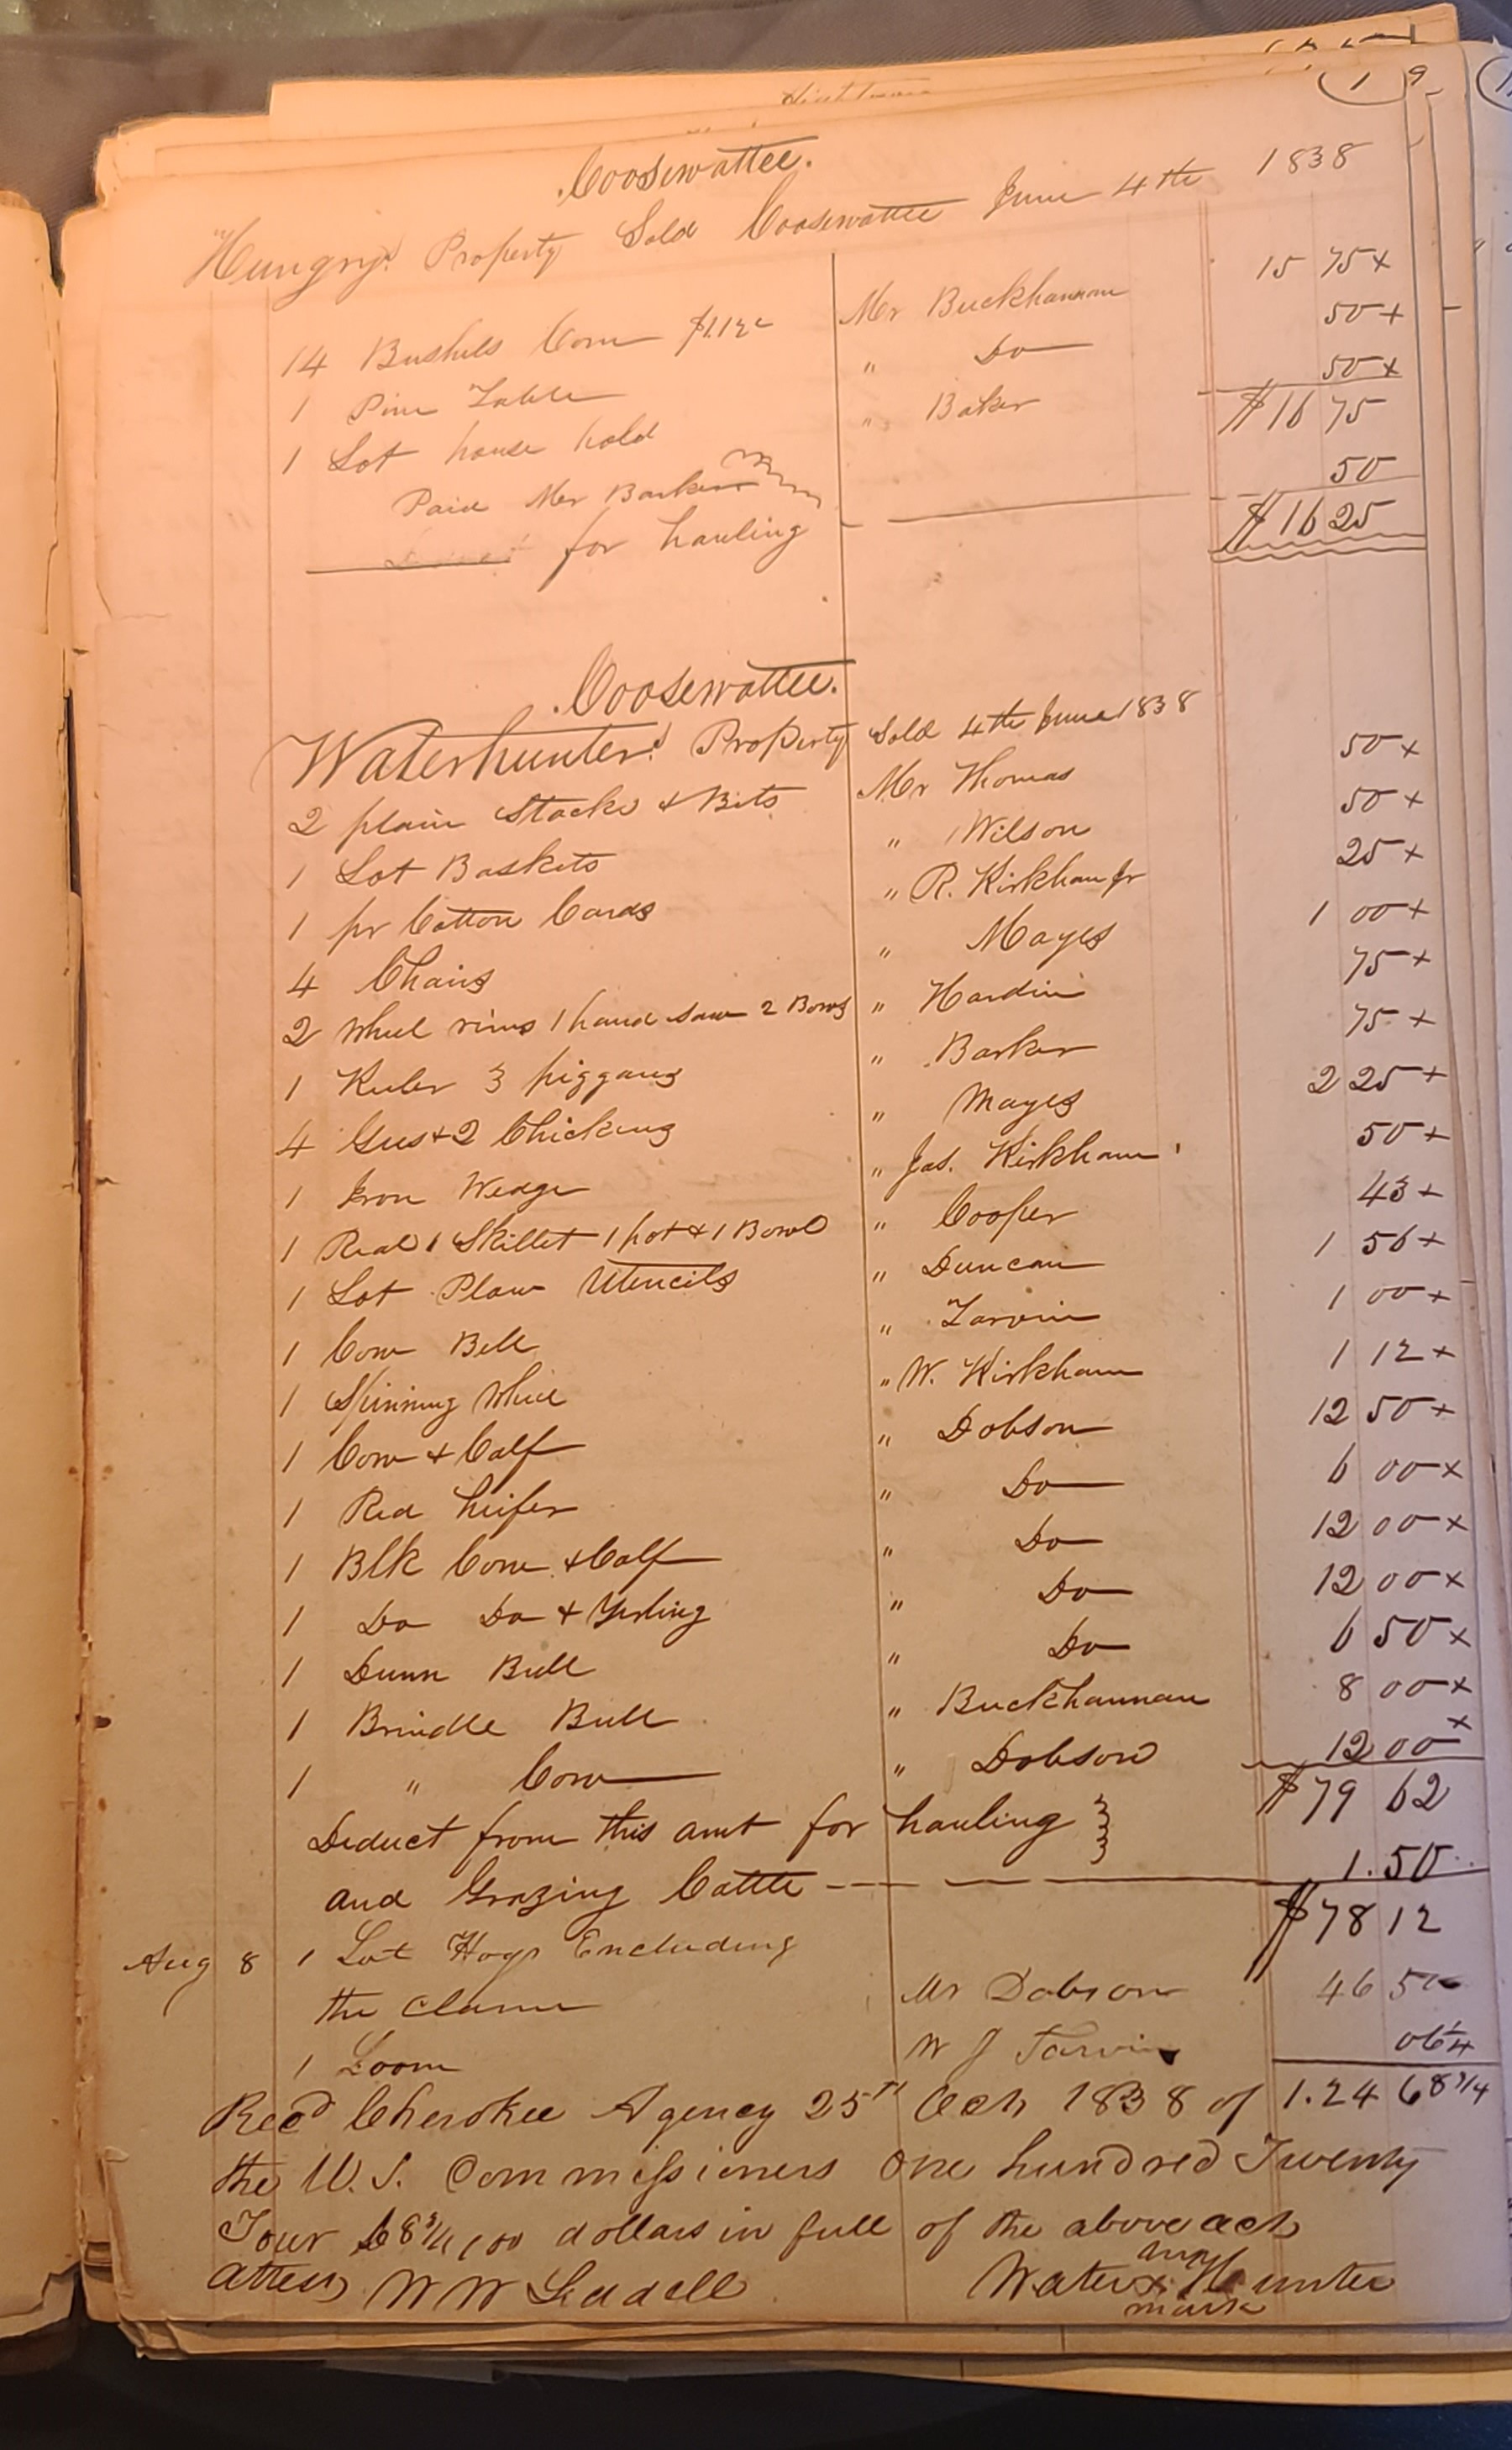 1 9
Coosewattee.
Hungry's Property Sold Coosewattee June 4th 1838
14 Bushels Corn $1.12c Mr Buckhannan 15 75 x
1 Pine Table " Do 50 x
1 Lot house hold " Baker 50 x
$16 75
Paid Mr Barker
for hauling 50
$16 25
Coosewattee.
Waterhunter's Property Sold 4th June 1838
2 plain Stocks & Bits Mr Thomas 50 x
1 Lot Baskets " Wilson 50 x
1 pr Cotton Cards " R. Kirkham Jr 25 x
4 Chairs " Mayes 1 00 x
2 wheel rims 1 hand saw 2 Bows " Hardin 75 x
1 Keeler 3 piggans " Barker 75 x
4 Gees & 2 Chickens " Mayes 2 25 x
1 Iron Wedge " Jas. Kirkham 50 x
1 Read 1 Skillet 1 pot & 1 Bowl " Cooper 43 x
1 Lot Plaw Utencils " Duncan 1 56 x
1 Cow Bell " Tarvin 1 00 x
1 Spinning Wheel " W. Kirkham 1 12 x
1 Cow & Calf " Dobson 12 50 x
1 Red heifer " Do 6 00 x
1 Blk Cow & Calf " Do 12 00 x
1 Do Do & Yerling " Do 12 00 x
1 Dunn Bull " Do 6 50 x
1 Brindle Bull " Buckhannan 8 00 x
1 " Cow " Dobson 12 00 x
$79 62
Deduct from this amt for hauling
and Grazing Cattle 1.50
$78 12
Aug 8 1 Lot Hogs Encluding
the Claim Mr Dobson 46 50
1 Loom W J Tarvin 06 1/4
1.24 68 3/4
Recd Cherokee Agency 25th Oct 1838 of
the U.S. Commissioners One hundred Twenty
Four 68 3/4/100 dollars in full of the above act
Attest W W Liddell Water x Hunter
mark